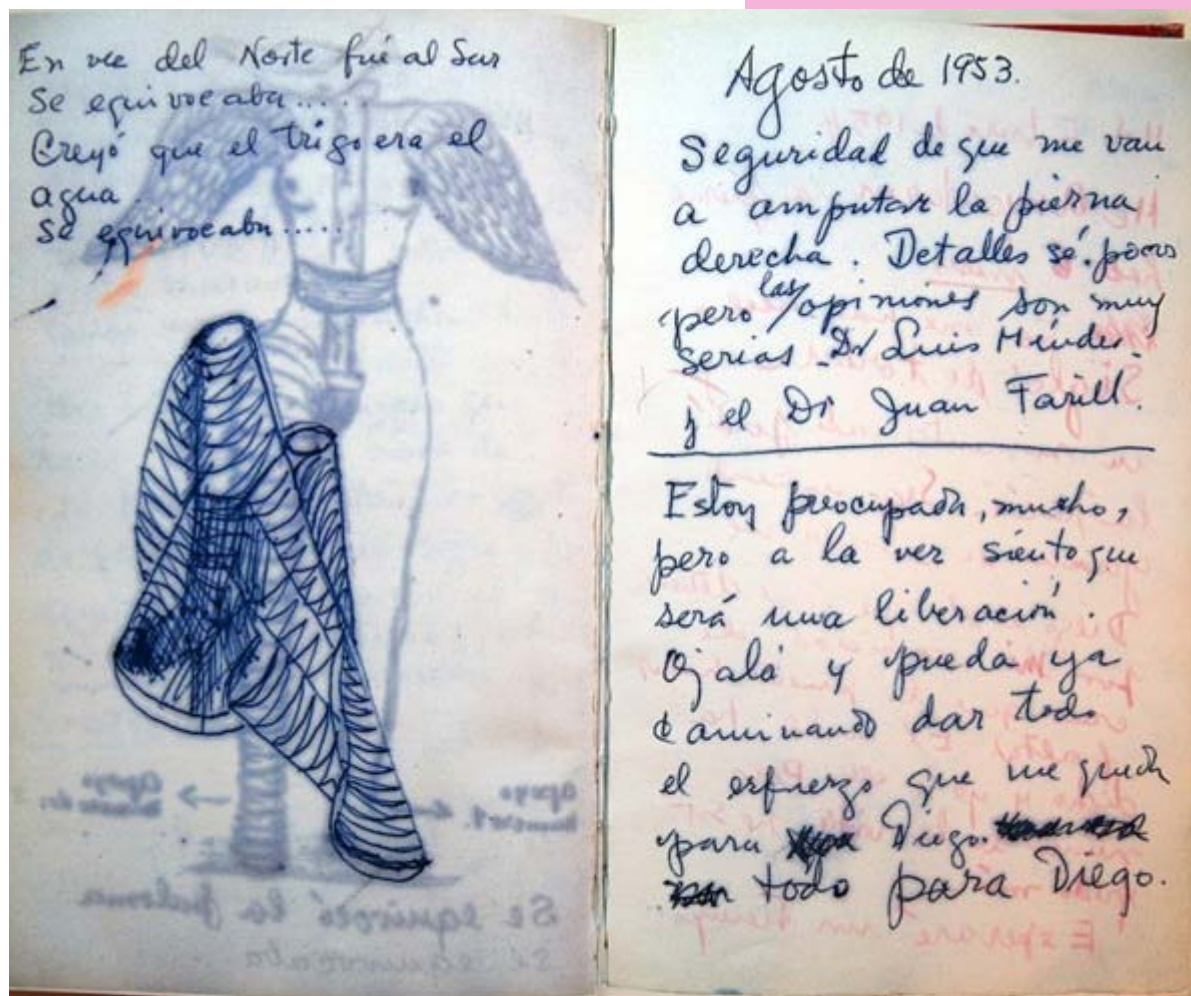 En vez del Norte fué al Sur
Se equivocaba.....
Creyó que el trigo era el
agua
Se equivocaba.....
Agosto de 1953.
Seguridad de que me van
a amputar la pierna
derecha. Detalles sé pocos
pero las opiniones son muy
serias. Dr Luis Méndez
y el Dr Juan Farill.
Estoy preocupada, mucho,
pero a la vez siento que
será una liberación.
Ojalá y pueda ya
caminando dar todo
el esfuerzo que me queda
para Diego.
todo para Diego.
apoyo
número 1.
apoyo
número 2.
Se equivocó la paloma
se equivocaba
Esperaré un tiempo